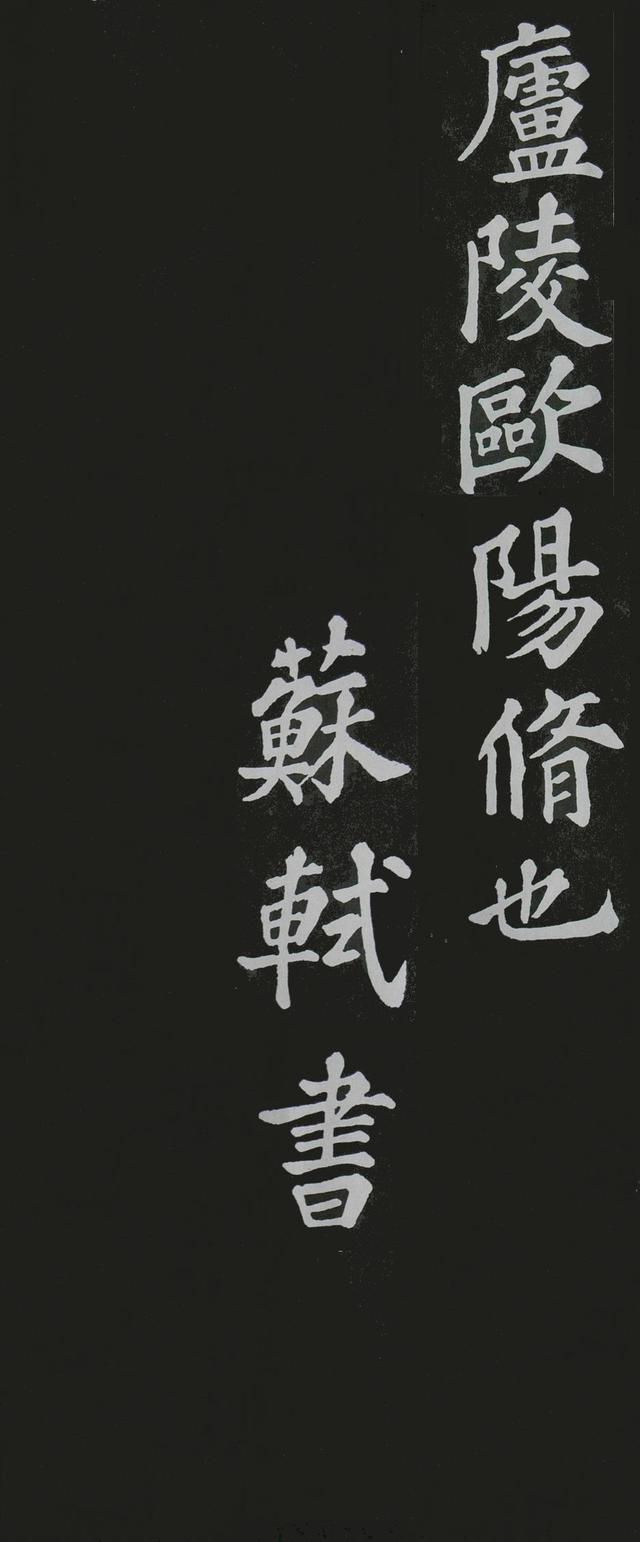 廬陵歐陽脩也
蘇軾書